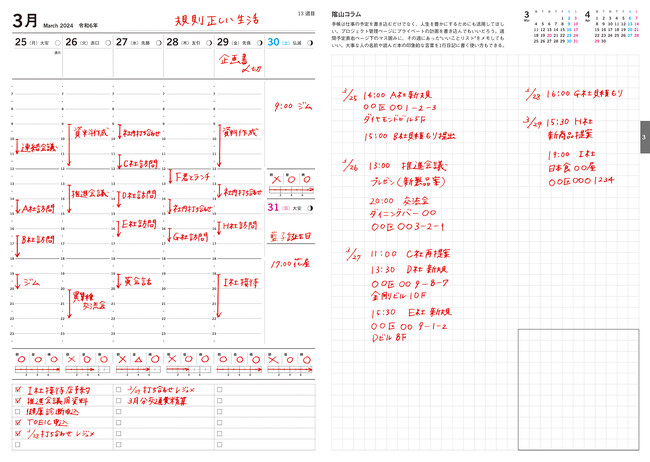 3月 March 2024 令和6年
規則正しい生活
13週目
25(月)大安
26(火)赤口
27(水)先勝
28(木)友引
29(金)先負
30(土)仏滅
企画書
〆切
9:00 ジム
連絡会議
A社訪問
B社訪問
ジム
資料作成
推進会議
異業種
交流会
社内打ち合わせ
C社訪問
D社訪問
E社訪問
英会話
F君とランチ
社内打ち合わせ
G社訪問
資料作成
社内打ち合わせ
H社訪問
I社接待
31(日)大安
誕生日
17:00 花屋
朝 昼 晩
× ○ ○
○ ○ ○
× ○ ○
○ ○ ○
× △ ○
× ○ ○
○ ○ ○
I社接待店予約
推進会議用資料
健康診断申込
TOEIC申込
3/27打ち合わせレジメ
3/29打ち合わせレジメ
3月分交通費精算
陰山コラム
手帳は仕事の予定を書き込むだけでなく、人生を豊かにするためにも活用してほしい。プロジェクト管理ページにプライベートの計画を書き込んでもいいだろう。週間予定表右ページ下のマス囲みに、その週にあった“いいことリスト”をメモしてもいい。大事な人の名前や読んだ本の印象的な言葉を1行日記に書く使い方もできる。
3
4
3/25 14:00 A社新規
○○区 ○○1-2-3
ダイヤモンドビル5F
15:00 B社見積もり提出
3/26 13:00 推進会議
プレゼン(新製品案)
20:00 交流会
ダイニングバー ○○
○○区 ○○3-2-1
3/27 11:00 C社再提案
13:30 D社新規
○○区 ○○ 9-8-7
金剛ビル10F
15:30 E社新規
○○区 ○○ 9-1-2
Dビル8F
3/28 16:00 G社見積もり
3/29 15:30 H社
新商品提案
19:00 I社
日本食○○屋
○○区○○○1234
3